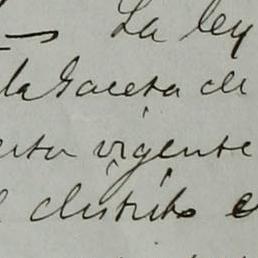 La ley
la Gaceta de
vigente
distrito